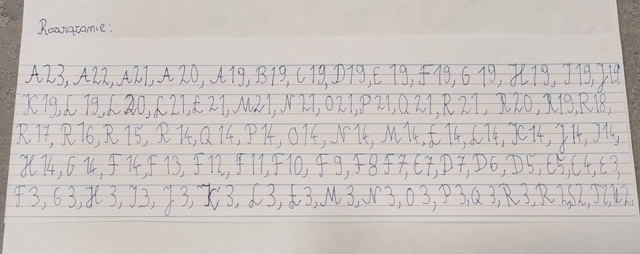 Rozwiązanie:
A23, A22, A21, A 20, A19, B19, C19, D19, E 19, F19, G 19, H19, I19, J19,
K19, L 19, L20, L21, Ł21, M21, N21, O21, P21, Q21, R21, R20, R19, R18,
R17, R16, R 15, R 14, Q14, P14, O14, N 14, M 14, Ł 14, L14, K14, J14, I14,
H14, G 14, F 14, F 13, F 12, F 11, F10, F9, F8 F7, E7, D7, D6, D5, E5, E4, E3,
F 3, G 3, H 3, I3, J 3, K 3, L 3, Ł 3, M 3, N 3, O 3, P 3, Q 3, R3, R 2, S2, T2, U2.